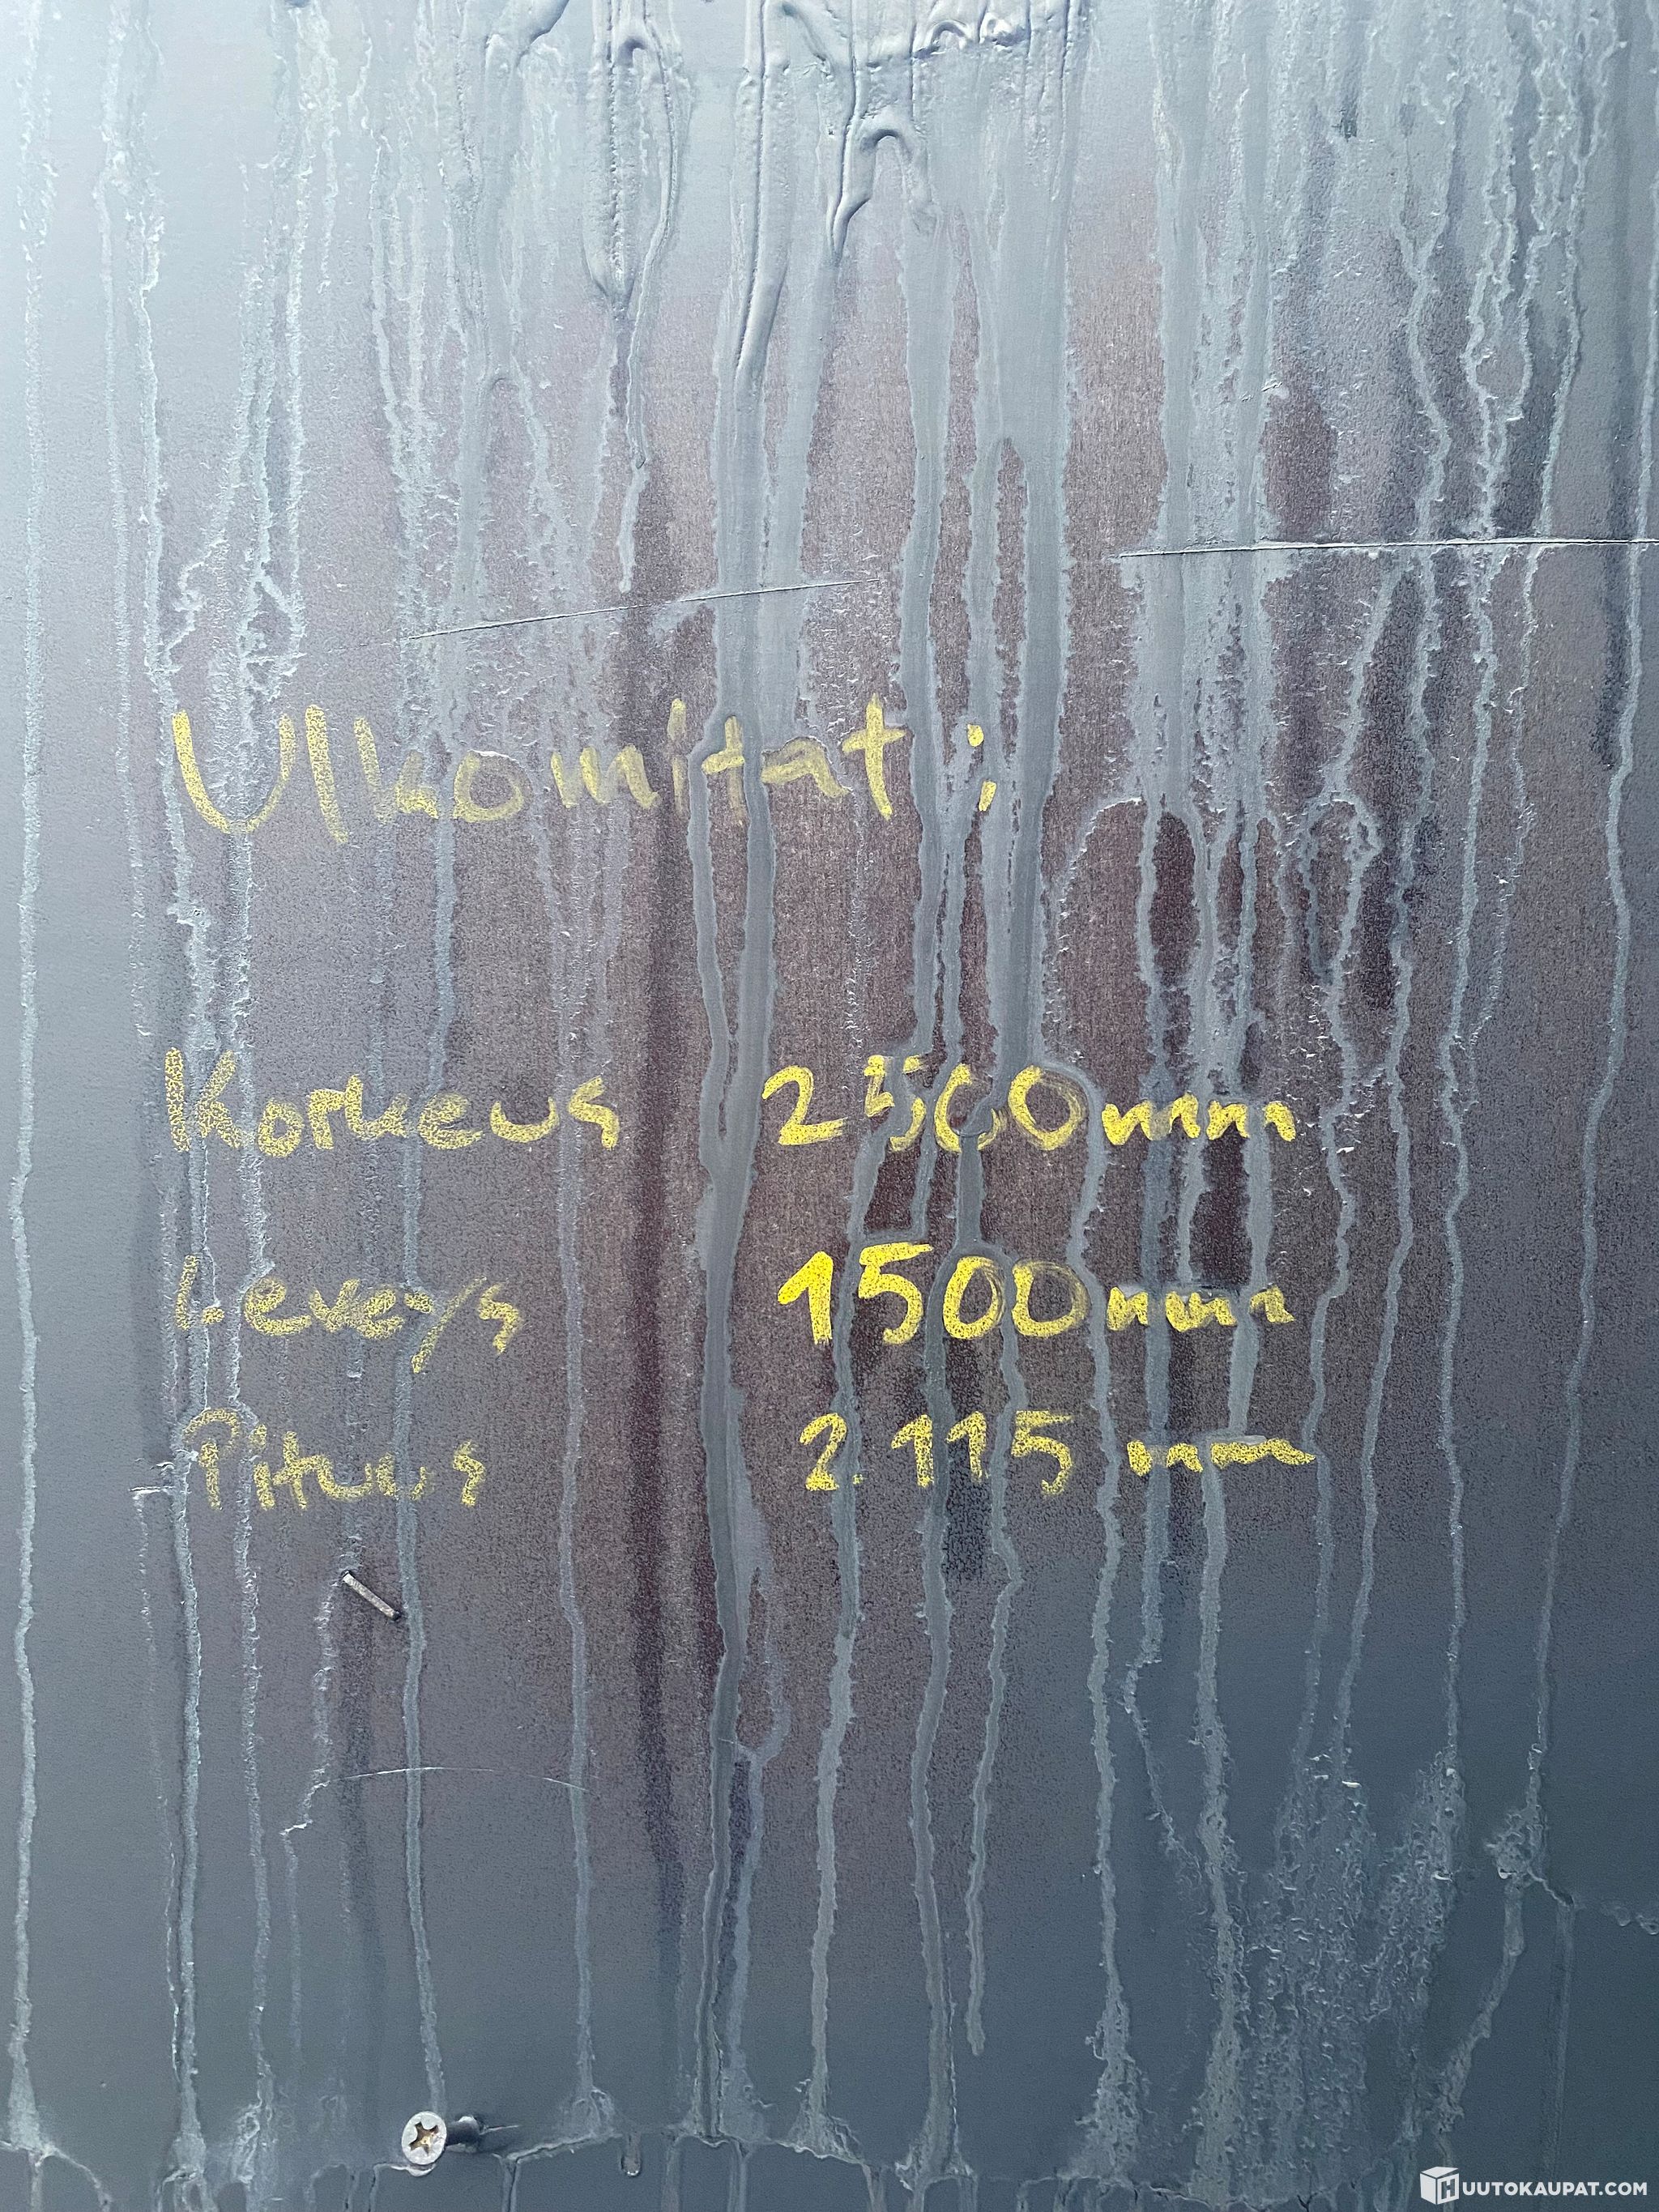 Ulkomitat;
Korkeus 2500mm
Leveys 1500mm
Pituus 2115 mm
HUUTOKAUPAT.COM